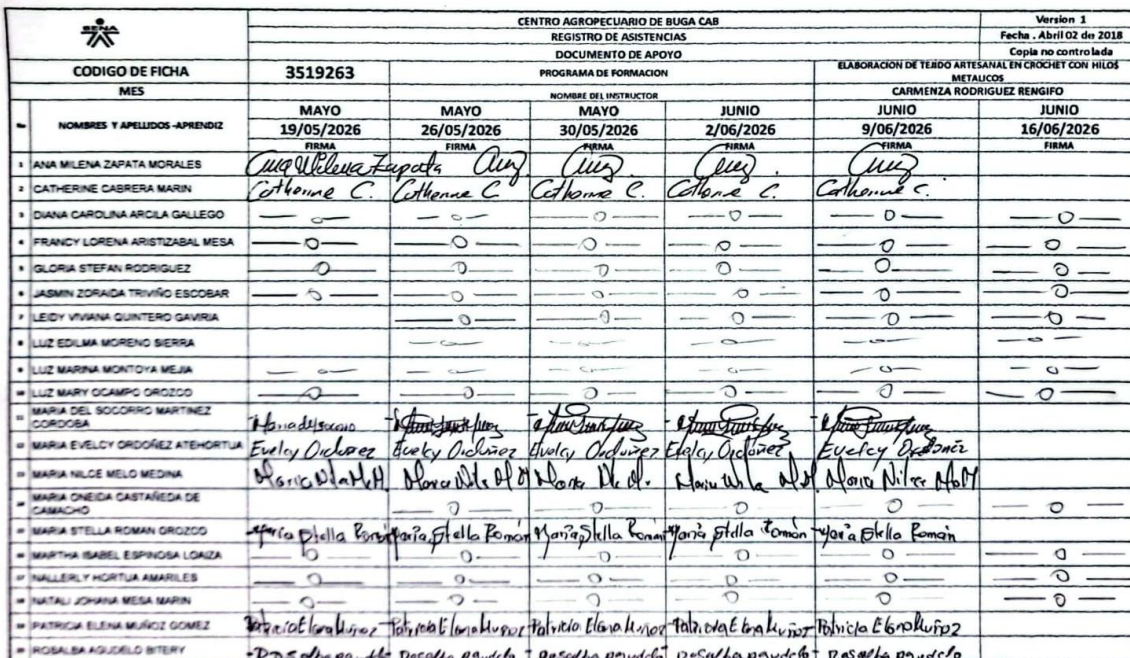 SENA
CENTRO AGROPECUARIO DE BUGA CAB
Version 1
REGISTRO DE ASISTENCIAS
Fecha . Abril 02 de 2018
DOCUMENTO DE APOYO
Copia no controlada
CODIGO DE FICHA 3519263 PROGRAMA DE FORMACION ELABORACION DE TEJIDO ARTESANAL EN CROCHET CON HILOS METALICOS
MES NOMBRE DEL INSTRUCTOR CARMENZA RODRIGUEZ RENGIFO
No NOMBRES Y APELLIDOS -APRENDIZ
MAYO MAYO MAYO JUNIO JUNIO JUNIO
19/05/2026 26/05/2026 30/05/2026 2/06/2026 9/06/2026 16/06/2026
FIRMA FIRMA FIRMA FIRMA FIRMA FIRMA
1 ANA MILENA ZAPATA MORALES Ana Milena Zapata
2 CATHERINE CABRERA MARIN Catherine C. Catherine C Catherine C. Catherine C. Catherine C.
3 DIANA CAROLINA ARCILA GALLEGO
4 FRANCY LORENA ARISTIZABAL MESA
5 GLORIA STEFAN RODRIGUEZ
6 JASMIN ZORAIDA TRIVIÑO ESCOBAR
7 LEIDY VIVIANA QUINTERO GAVIRIA
8 LUZ EDILMA MORENO SIERRA
9 LUZ MARINA MONTOYA MEJIA
10 LUZ MARY OCAMPO OROZCO
11 MARIA DEL SOCORRO MARTINEZ CORDOBA Maria del socorro
12 MARIA EVELCY ORDOÑEZ ATEHORTUA Evelcy Ordoñez Evelcy Ordoñez Evelcy Ordoñez Evelcy Ordoñez Evelcy Ordoñez
13 MARIA NILCE MELO MEDINA
14 MARIA ONEIDA CASTAÑEDA DE CAMACHO
15 MARIA STELLA ROMAN OROZCO Maria Stella Román Maria Stella Román Maria Stella Román Maria Stella Román Maria Stella Román
16 MARTHA ISABEL ESPINOSA LOAIZA
17 NALLERLY HORTUA AMARILES
18 NATALI JOHANA MESA MARIN
19 PATRICIA ELENA MUÑOZ GOMEZ Patricia Elena Muñoz Patricia Elena Muñoz Patricia Elena Muñoz Patricia Elena Muñoz Patricia Elena Muñoz
20 ROSALBA AGUDELO BITERY Rosalba agudelo Rosalba agudelo Rosalba agudelo Rosalba agudelo Rosalba agudelo